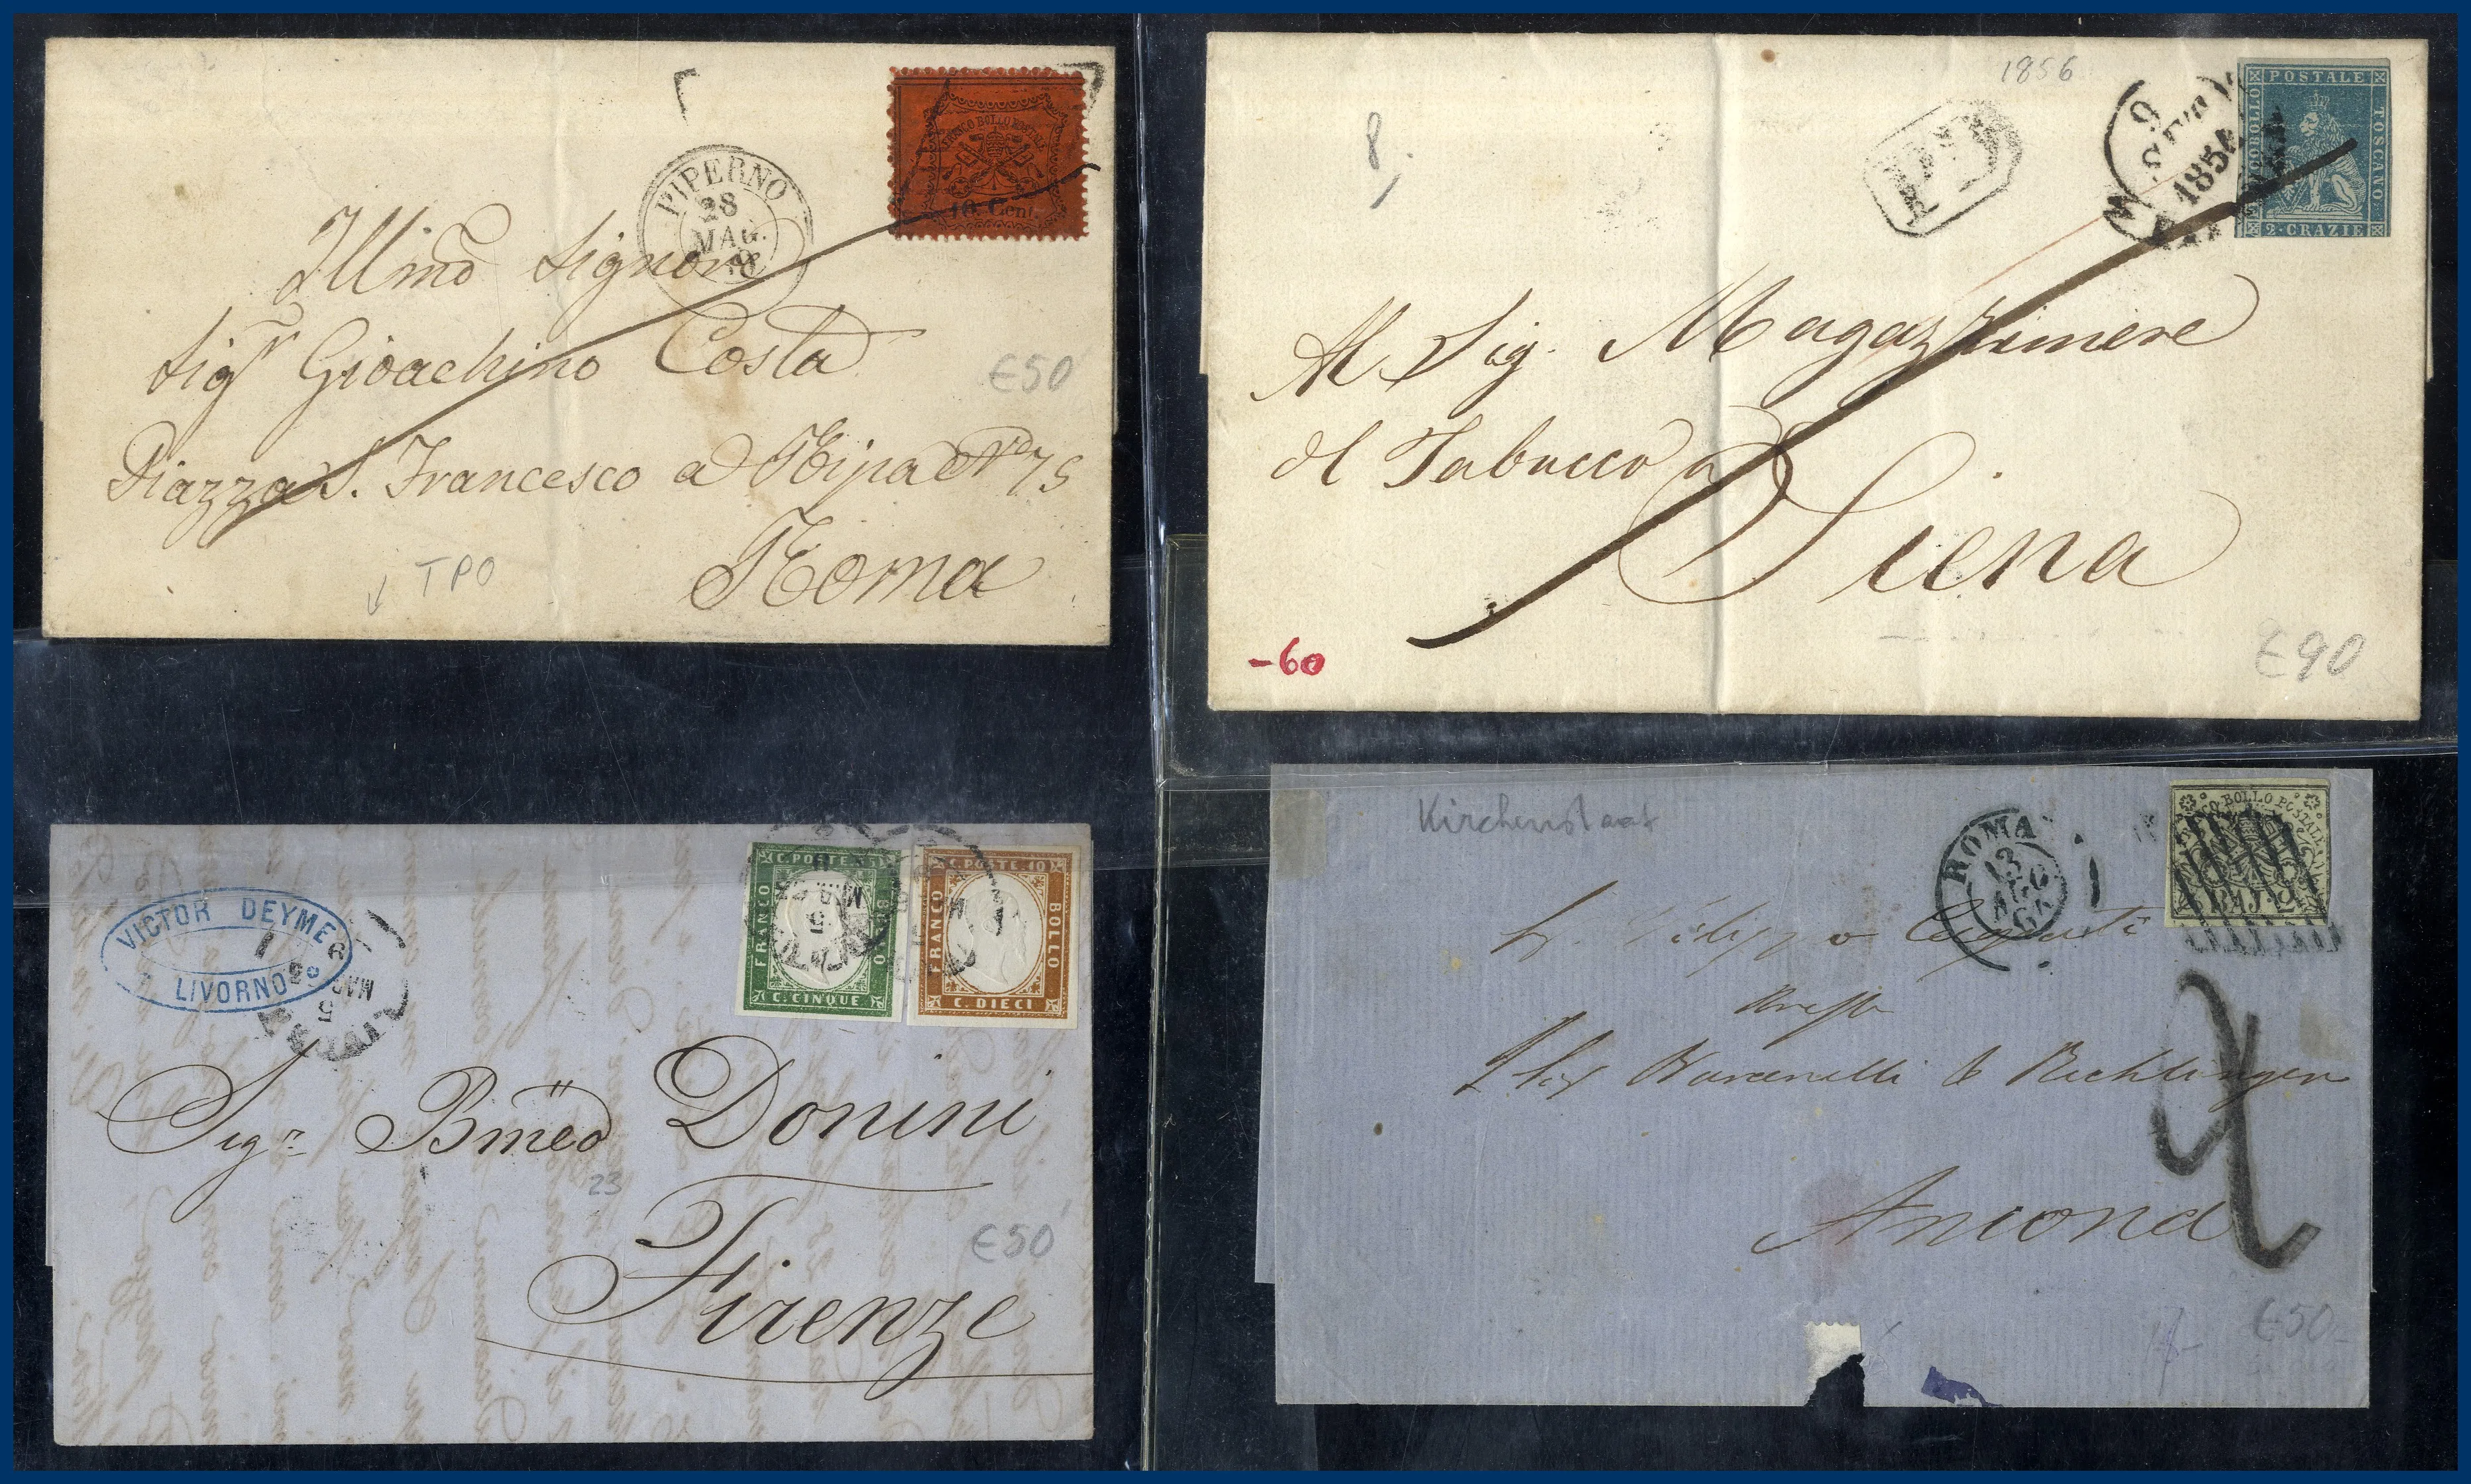 FRANCO BOLLO POSTALE
10. Cent.
PIPERNO
28
MAG.
Illmo Signore
Sigr Gioachino Costa
€50
Piazza S. Francesco a Ripa No 75
Roma
TPO
1856
8
PD
9
1856
POSTALE
FRANCOBOLLO
TOSCANO
2·CRAZIE
Al Sig. Magazziniere
del Tabacco a
Siena
-60
€90
VICTOR DEYME
LIVORNO
5
MAR
C. POSTE 5
FRANCO
BOLLO
C. CINQUE
C. POSTE 10
FRANCO
BOLLO
C. DIECI
Sigr Bmeo Donini
23
Firenze
€50
Kirchenstaat
ROMA
13
AGO
BOLLO POSTALE
BAJ. 2
Ancona
2
€50-